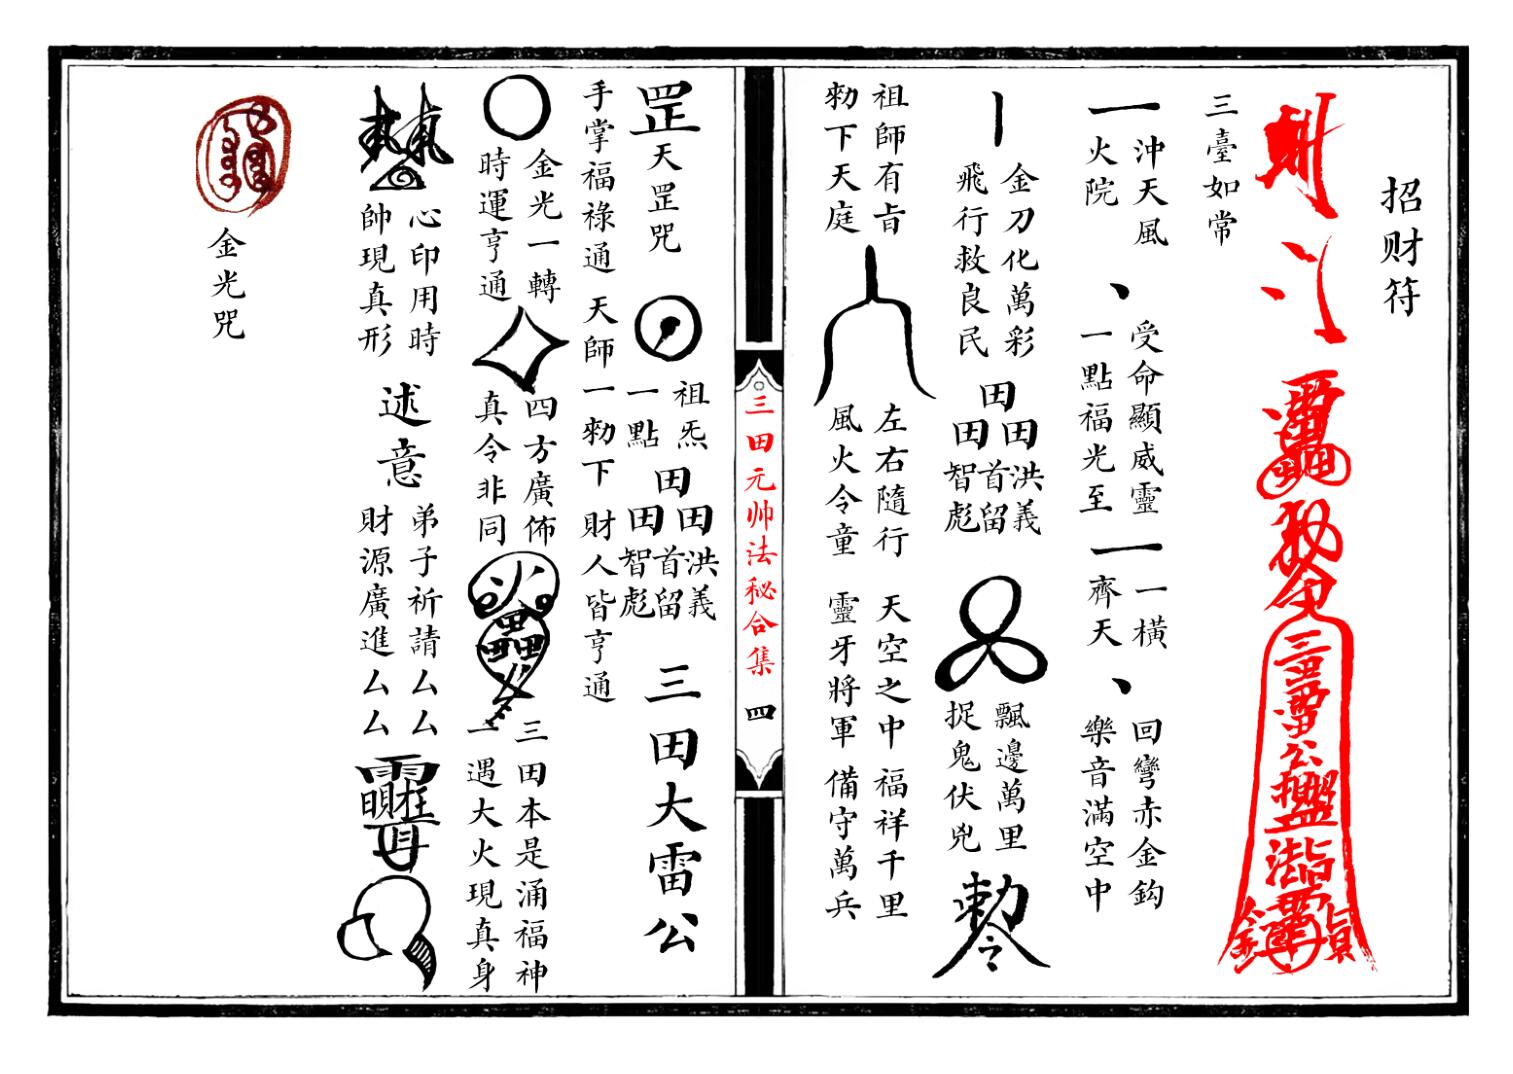 招财符
三臺如常
一
沖天風
火院
丶
受命顯威靈
一點福光至
一
一橫
齊天
丶
回彎赤金鈎
樂音滿空中
丨
金刀化萬彩
飛行救良民
田
田田
洪義
首留
智彪
飄邊萬里
捉鬼伏兇
勅令
祖師有旨
勑下天庭
左右隨行
風火令童
天空之中
靈牙將軍
福祥千里
備守萬兵
三田元帅法秘合集 四
罡
天罡咒
祖炁
一點
田
田田
洪義
首留
智彪
三田大雷公
手掌福祿通 天師一勑下 財人皆亨通
金光一轉
時運亨通
四方廣佈
真令非同
三田本是涌福神
一遇大火現真身
心印用時
帥現真形
述意
弟子祈請厶厶
財源廣進厶厶
金光咒